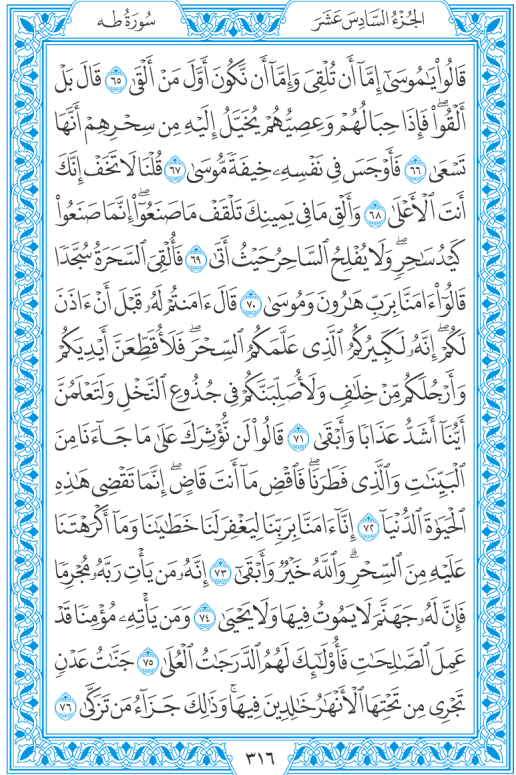 الجُزْءُ السَّادِسَ عَشَرَ
سُورَةُ طه
قَالُوا۟ يَـٰمُوسَىٰٓ إِمَّآ أَن تُلْقِىَ وَإِمَّآ أَن نَّكُونَ أَوَّلَ مَنْ أَلْقَىٰ ٦٥ قَالَ بَلْ
أَلْقُوا۟ۖ فَإِذَا حِبَالُهُمْ وَعِصِيُّهُمْ يُخَيَّلُ إِلَيْهِ مِن سِحْرِهِمْ أَنَّهَا
تَسْعَىٰ ٦٦ فَأَوْجَسَ فِى نَفْسِهِۦ خِيفَةً مُّوسَىٰ ٦٧ قُلْنَا لَا تَخَفْ إِنَّكَ
أَنتَ ٱلْأَعْلَىٰ ٦٨ وَأَلْقِ مَا فِى يَمِينِكَ تَلْقَفْ مَا صَنَعُوٓا۟ۖ إِنَّمَا صَنَعُوا۟
كَيْدُ سَـٰحِرٍۖ وَلَا يُفْلِحُ ٱلسَّاحِرُ حَيْثُ أَتَىٰ ٦٩ فَأُلْقِىَ ٱلسَّحَرَةُ سُجَّدًا
قَالُوٓا۟ ءَامَنَّا بِرَبِّ هَـٰرُونَ وَمُوسَىٰ ٧٠ قَالَ ءَامَنتُمْ لَهُۥ قَبْلَ أَنْ ءَاذَنَ
لَكُمْۖ إِنَّهُۥ لَكَبِيرُكُمُ ٱلَّذِى عَلَّمَكُمُ ٱلسِّحْرَۖ فَلَأُقَطِّعَنَّ أَيْدِيَكُمْ
وَأَرْجُلَكُم مِّنْ خِلَـٰفٍ وَلَأُصَلِّبَنَّكُمْ فِى جُذُوعِ ٱلنَّخْلِ وَلَتَعْلَمُنَّ
أَيُّنَآ أَشَدُّ عَذَابًا وَأَبْقَىٰ ٧١ قَالُوا۟ لَن نُّؤْثِرَكَ عَلَىٰ مَا جَآءَنَا مِنَ
ٱلْبَيِّنَـٰتِ وَٱلَّذِى فَطَرَنَاۖ فَٱقْضِ مَآ أَنتَ قَاضٍۖ إِنَّمَا تَقْضِى هَـٰذِهِ
ٱلْحَيَوٰةَ ٱلدُّنْيَآ ٧٢ إِنَّآ ءَامَنَّا بِرَبِّنَا لِيَغْفِرَ لَنَا خَطَـٰيَـٰنَا وَمَآ أَكْرَهْتَنَا
عَلَيْهِ مِنَ ٱلسِّحْرِۗ وَٱللَّهُ خَيْرٌ وَأَبْقَىٰٓ ٧٣ إِنَّهُۥ مَن يَأْتِ رَبَّهُۥ مُجْرِمًا
فَإِنَّ لَهُۥ جَهَنَّمَ لَا يَمُوتُ فِيهَا وَلَا يَحْيَىٰ ٧٤ وَمَن يَأْتِهِۦ مُؤْمِنًا قَدْ
عَمِلَ ٱلصَّـٰلِحَـٰتِ فَأُو۟لَـٰٓئِكَ لَهُمُ ٱلدَّرَجَـٰتُ ٱلْعُلَىٰ ٧٥ جَنَّـٰتُ عَدْنٍ
تَجْرِى مِن تَحْتِهَا ٱلْأَنْهَـٰرُ خَـٰلِدِينَ فِيهَاۚ وَذَٰلِكَ جَزَآءُ مَن تَزَكَّىٰ ٧٦
٣١٦